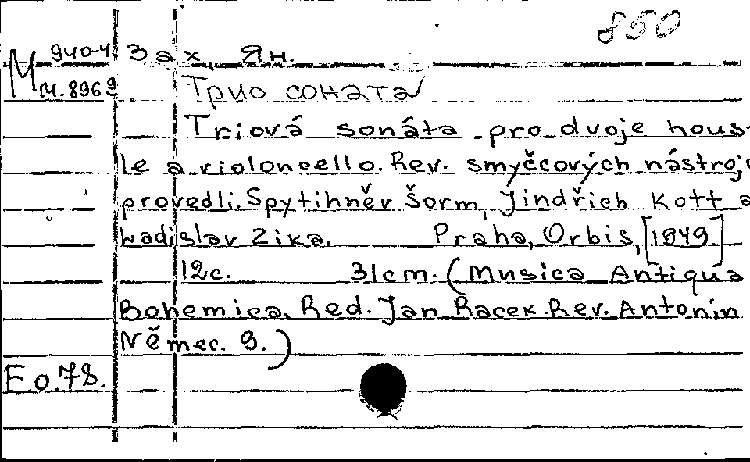 850
M 940-4 Зах, Ян.
м. 8969 Трио соната
Triová sonáta pro dvoje hous-
le a violoncello. Rev. smyčcových nástrojů
provedli. Spytihněv Šorm, Jindřich Kott a
Ladislav Zika. Praha, Orbis, [1949.]
12с. 31cm. (Musica Antiqua
Bohemica. Red. Jan Racek. Rev. Antonín
Němec. 9.)
F o.78.